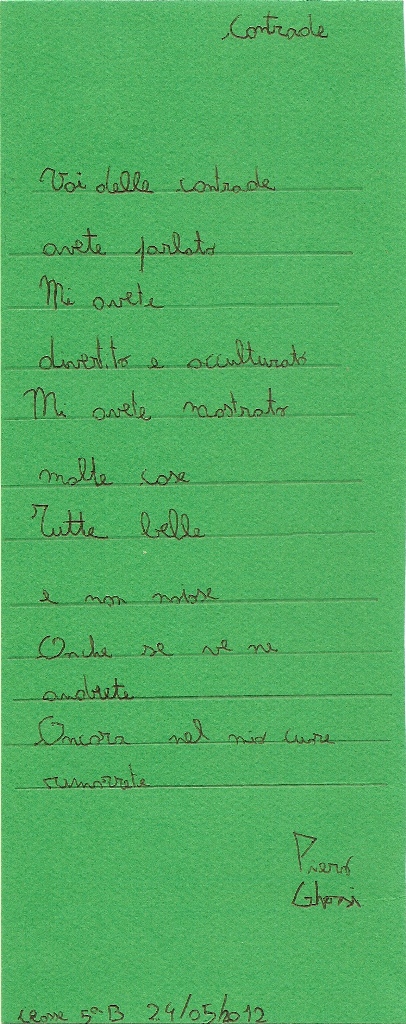 Contrade
Voi delle contrade
avete parlato
Mi avete
divertito e acculturato
Mi avete mostrato
molte cose
Tutte belle
e non noiose
Anche se ve ne
andrete
Ancora nel mio cuore
rimarrete
Piero
classe 5ªB 24/05/2012